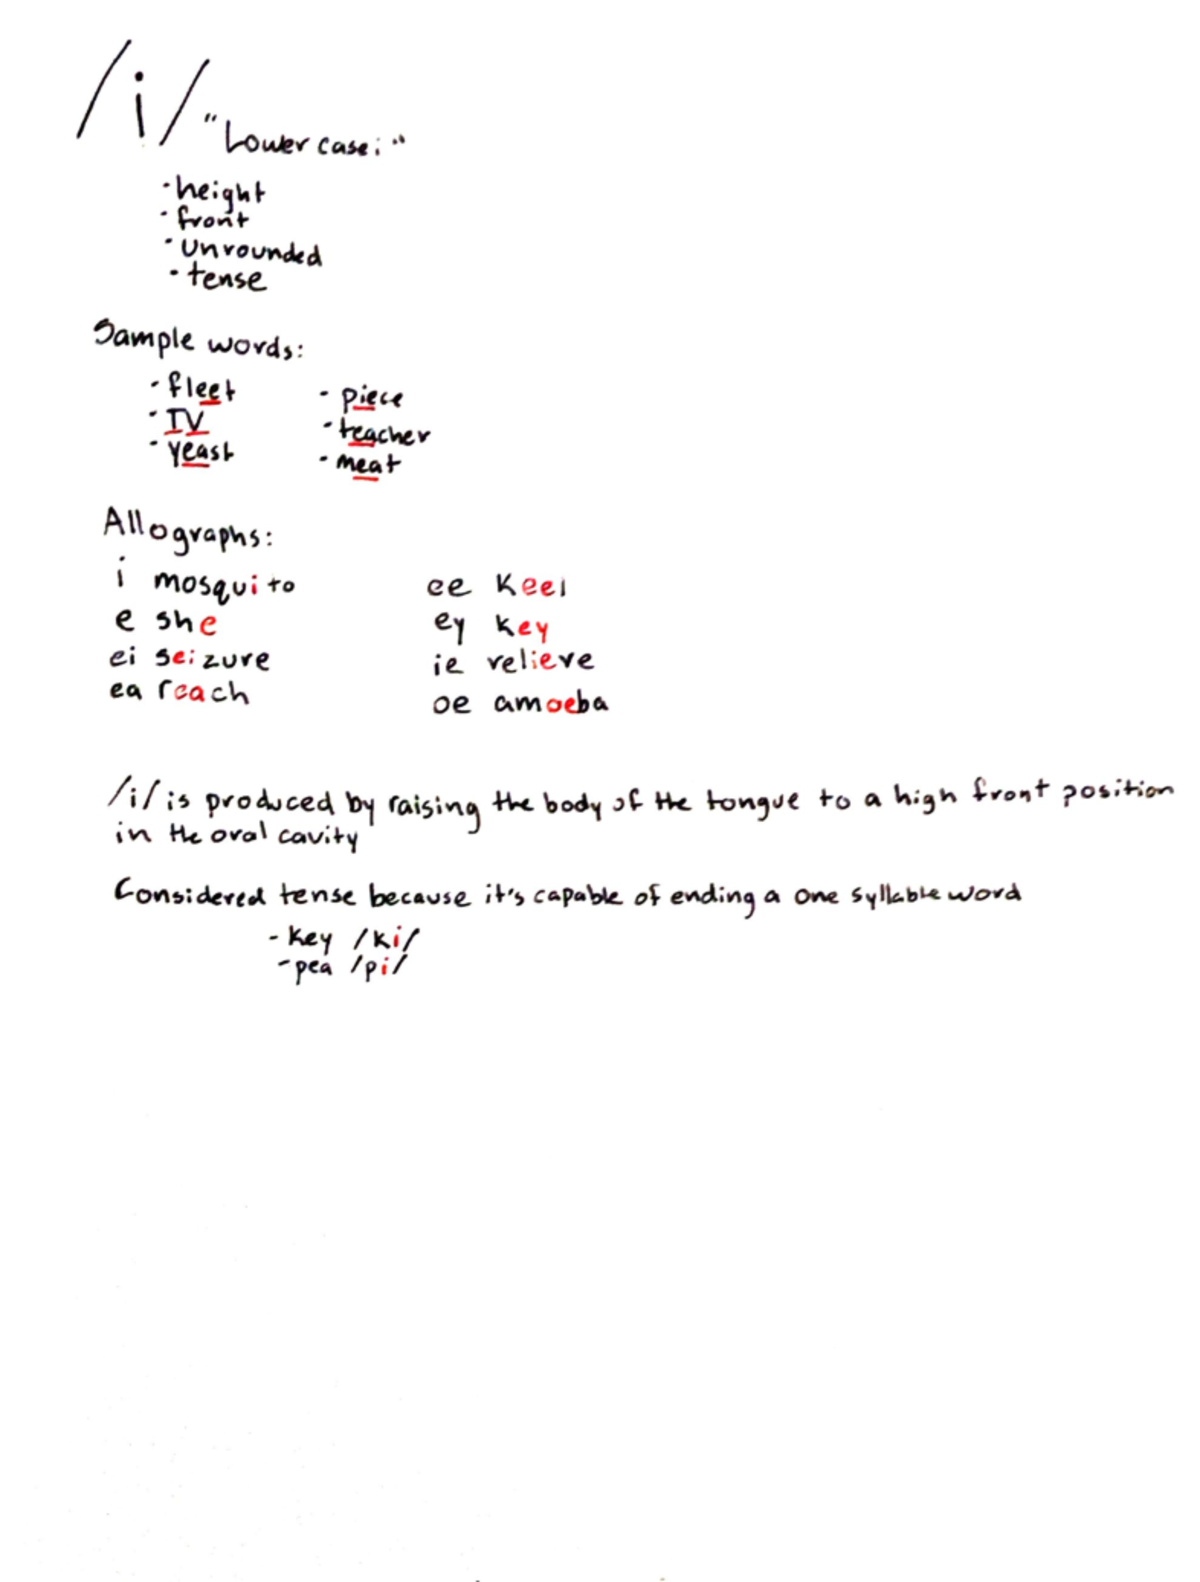 /i/ "Lower case i"
· height
· front
· unrounded
· tense
Sample words:
· fleet · piece
· TV · teacher
· yeast · meat
Allographs:
i mosquito ee keel
e she ey key
ei seizure ie relieve
ea reach oe amoeba
/i/ is produced by raising the body of the tongue to a high front position
in the oral cavity
Considered tense because it's capable of ending a one syllable word
- key /ki/
- pea /pi/